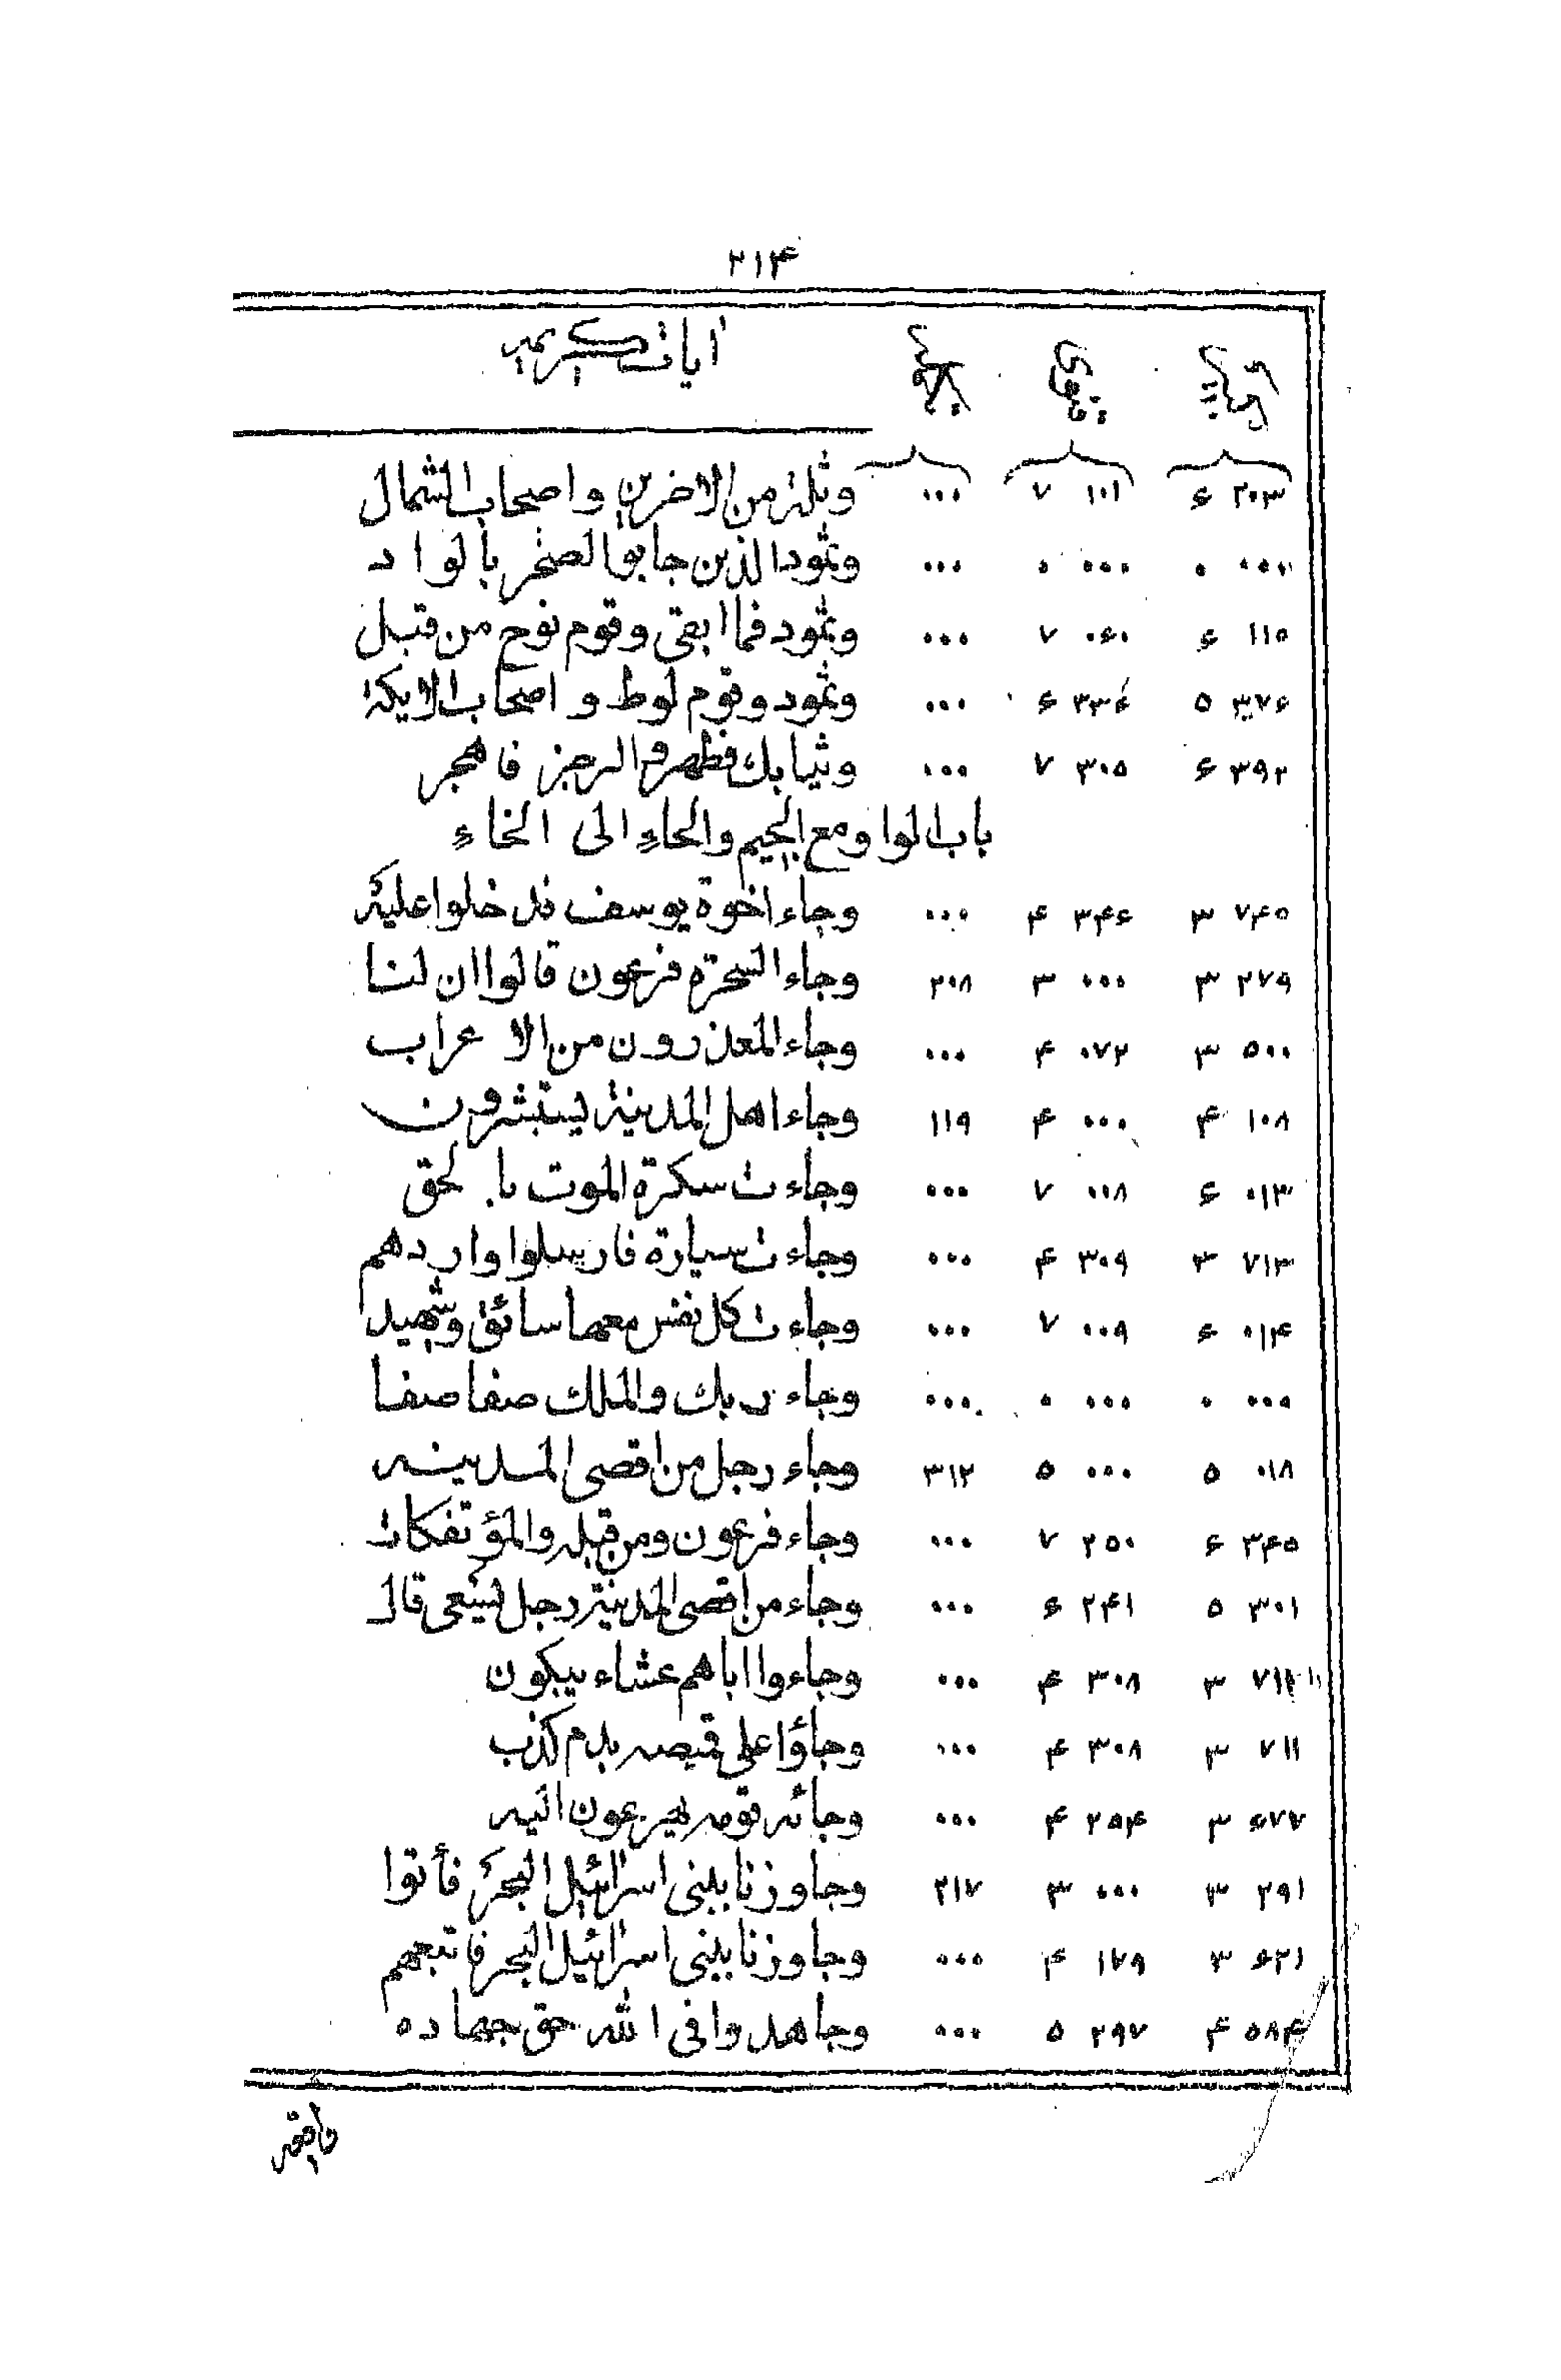 ۲۱۴
آیات کریمه
۲۰۳ ۶ ۱۰۱ ۷ ۰۰۰ وثلة من الاخرین واصحاب الشمال
۰۰۰ ۰ ۰۰۰ ۰ ۰۰۰ وثمود الذین جابوا الصخر بالواد
۱۱۵ ۶ ۰۶۰ ۷ ۰۰۰ وثمود فما ابقی وقوم نوح من قبل
۳۷۶ ۵ ۳۳۶ ۶ ۰۰۰ وثمود وقوم لوط و اصحاب الایکة
۳۹۲ ۶ ۳۰۵ ۷ ۰۰۰ وثیابک فطهر والرجز فاهجر
باب الواو مع الجیم والحاء الی الخاء
۷۴۵ ۳ ۳۴۶ ۴ ۰۰۰ وجاء اخوة یوسف فدخلوا علیه
۲۷۹ ۳ ۰۰۰ ۳ ۲۰۸ وجاء السحرة فرعون قالوا ان لنا
۵۰۰ ۳ ۰۷۲ ۴ ۰۰۰ وجاء المعذرون من الاعراب
۱۰۸ ۴ ۰۰۰ ۴ ۱۱۹ وجاء اهل المدینة یستبشرون
۰۱۳ ۶ ۰۰۸ ۷ ۰۰۰ وجاءت سکرة الموت بالحق
۷۱۳ ۳ ۳۰۹ ۴ ۰۰۰ وجاءت سیارة فارسلوا واردهم
۰۱۴ ۶ ۰۰۹ ۷ ۰۰۰ وجاءت کل نفس معها سائق وشهید
۰۰۰ ۰ ۰۰۰ ۰ ۰۰۰ وجاء ربک والملک صفا صفا
۰۱۸ ۵ ۰۰۰ ۵ ۳۱۲ وجاء رجل من اقصی المدینه
۳۴۵ ۶ ۲۵۰ ۷ ۰۰۰ وجاء فرعون ومن قبله والمؤتفکات
۳۰۱ ۵ ۲۴۱ ۶ ۰۰۰ وجاء من اقصی المدینة رجل یسعی قال
۳ ۳۰۸ ۴ ۰۰۰ وجاءوا اباهم عشاء یبکون
۷۱۱ ۳ ۳۰۸ ۴ ۰۰۰ وجاؤا علی قمیصه بدم کذب
۶۷۷ ۳ ۲۵۴ ۴ ۰۰۰ وجائه قومه یهرعون الیه
۲۹۱ ۳ ۰۰۰ ۳ ۲۱۷ وجاوزنا ببنی اسرائیل البحر فأتوا
۶۲۱ ۳ ۱۷۹ ۴ ۰۰۰ وجاوزنا ببنی اسرائیل البحر فاتبعهم
۵۸۴ ۴ ۲۹۷ ۵ ۰۰۰ وجاهدوا فی الله حق جهاده